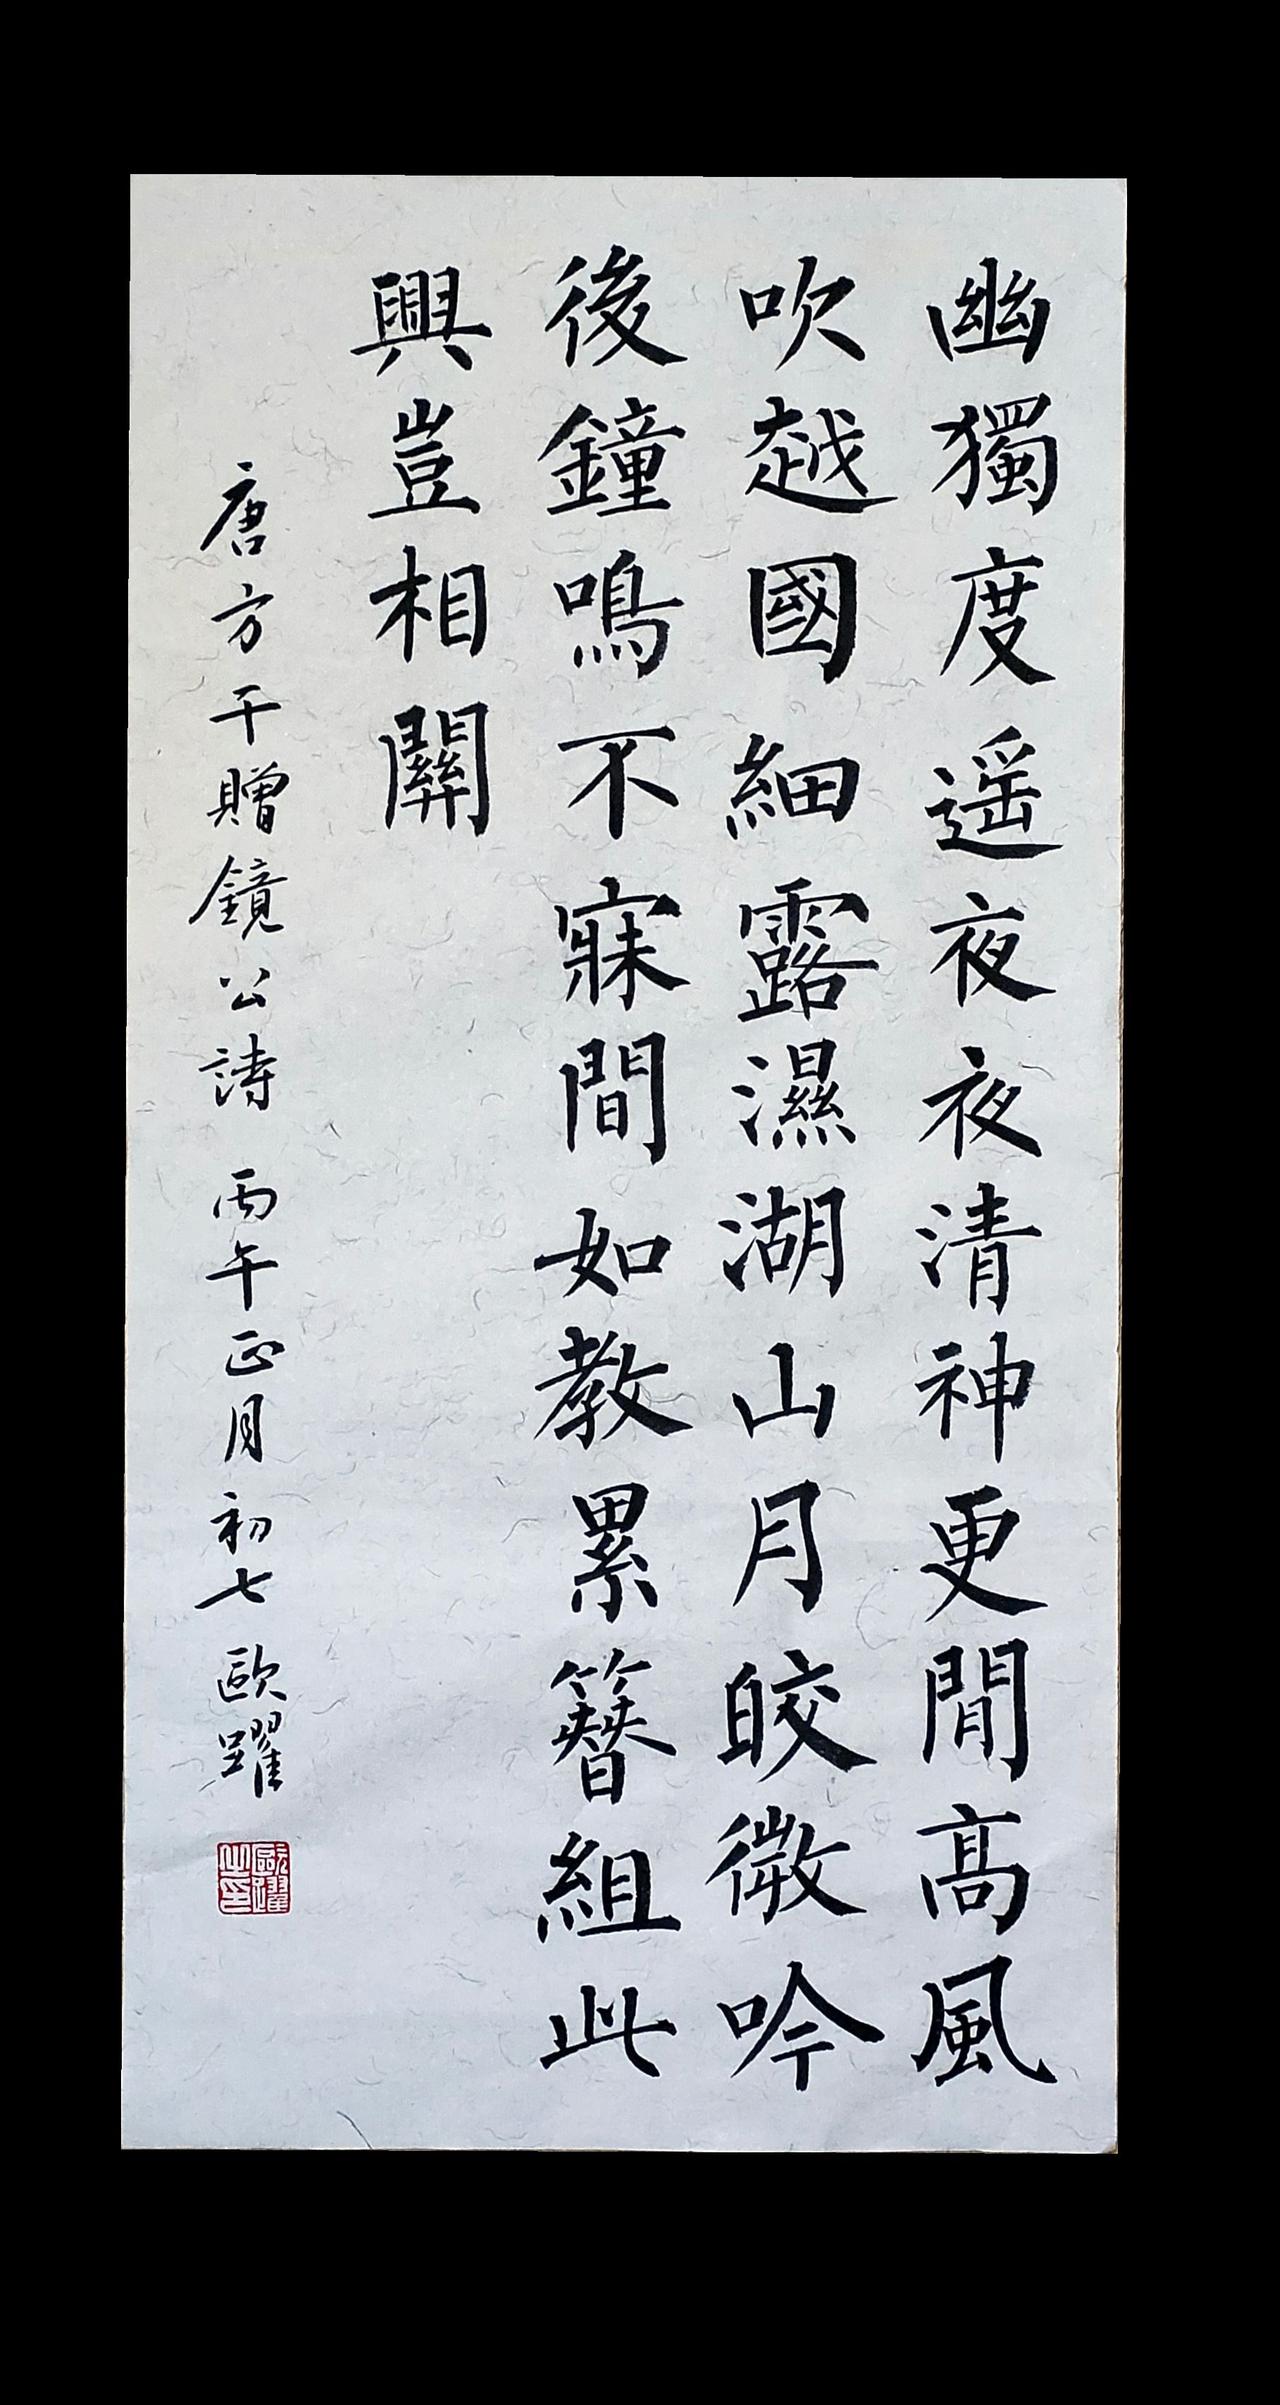 幽獨度遥夜夜清神更閒高風
吹越國細露濕湖山月皎微吟
後鐘鳴不寐間如教累簪組此
興豈相關
唐方干贈鏡公詩 丙午正月初七歐躍
歐躍之印